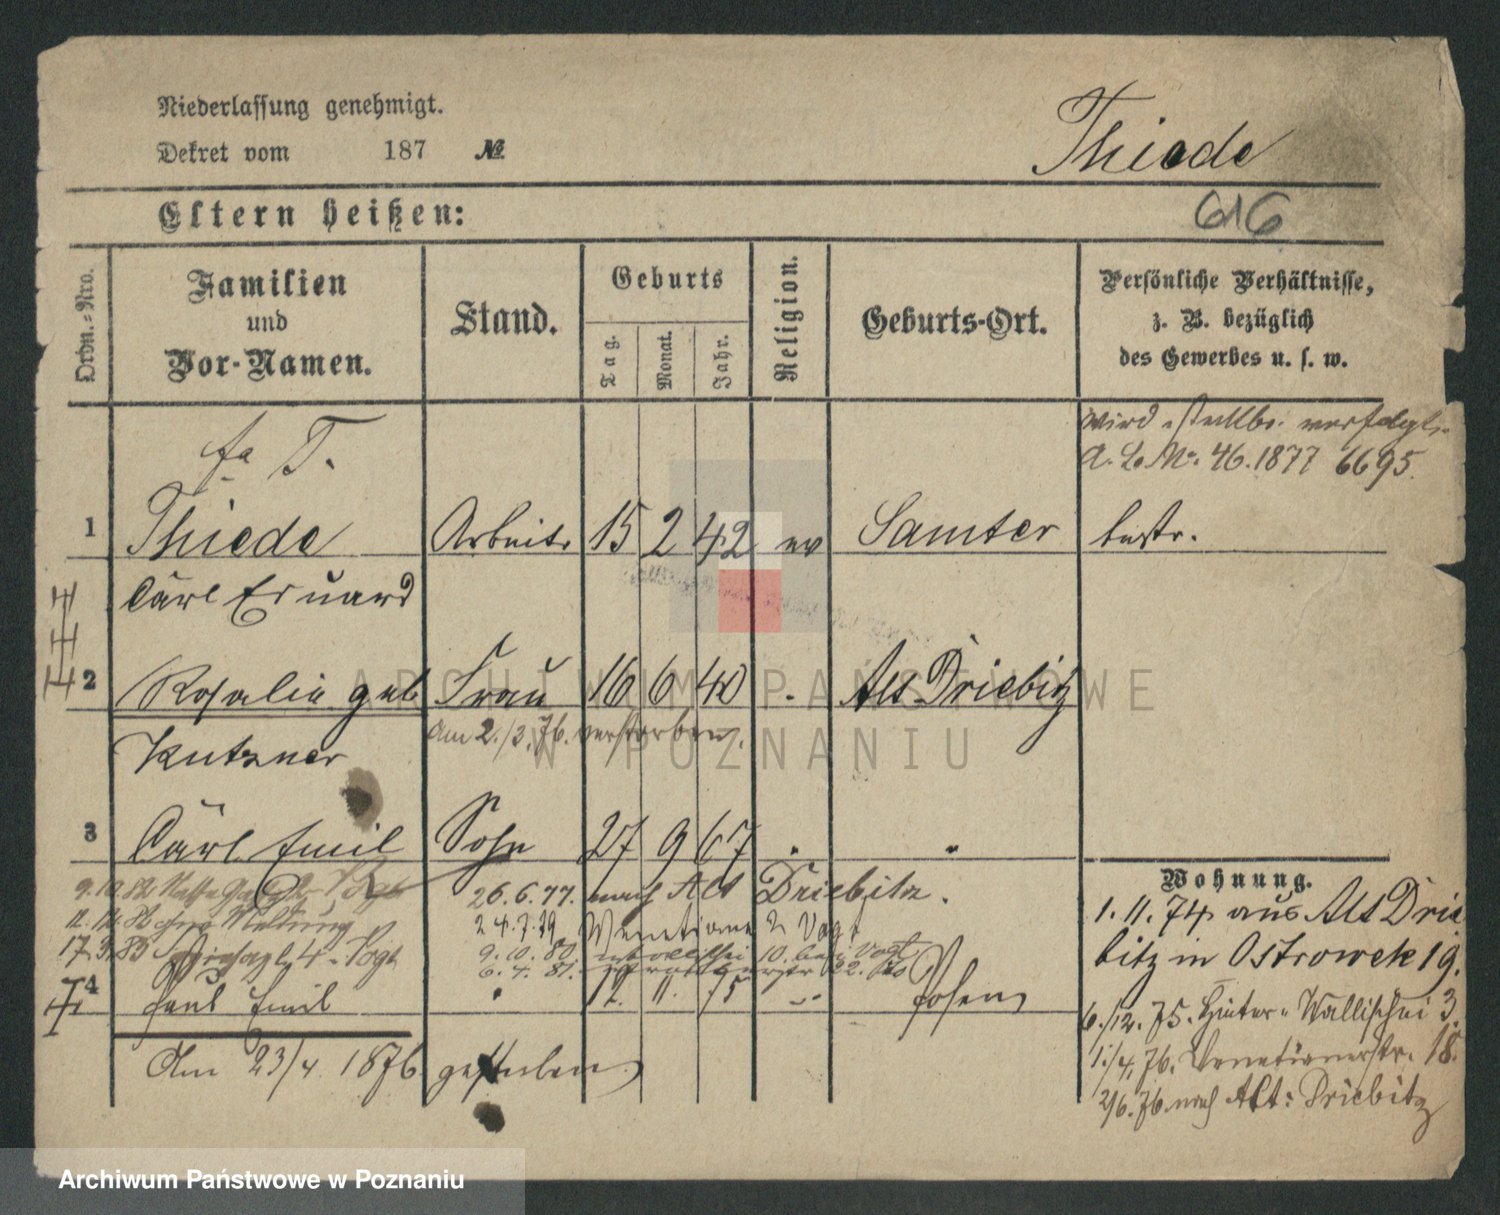 Niederlassung genehmigt.
Dekret vom 187 №
Thiede
Eltern heißen:
616
Ordn.-Nro.
Familien
und
Vor-Namen.
Stand.
Geburts
Tag.
Monat.
Jahr.
Religion.
Geburts-Ort.
Persönliche Verhältnisse,
z. B. bezüglich
des Gewerbes u. s. w.
wird steckbr. verfolgt.
A. L. No. 46. 1877 6695.
fa T.
1 Thiede Arbeiter 15 2 42 ev Samter bestr.
Carl Eduard
2 Rosalie geb Frau 16 6 40 Alt Driebitz
Kutzner am 2./3. 76. verstorben.
3 Carl Emil Sohn 27 9 67
Wohnung.
1. 11. 74 aus Alt Drie
bitz in Ostrowek 19.
6./12. 75. Hinter Wallischei 3.
1./4. 76. Venetianerstr. 18.
2/6. 76 nach Alt Driebitz
9.10.82
26.6.77. nach Alt Driebitz.
11.12.82 ohne Meldung
24.7.79 Venetianer 2 Vogt
17.3.83 4 Vogt
9.10.80. Wallischei 10. bei Vogt
6.4.81.
4 Paul Emil 12. 11. 75 Posen
Am 23/4 1876 gestorben
ARCHIWUM PAŃSTWOWE
W POZNANIU
Archiwum Państwowe w Poznaniu